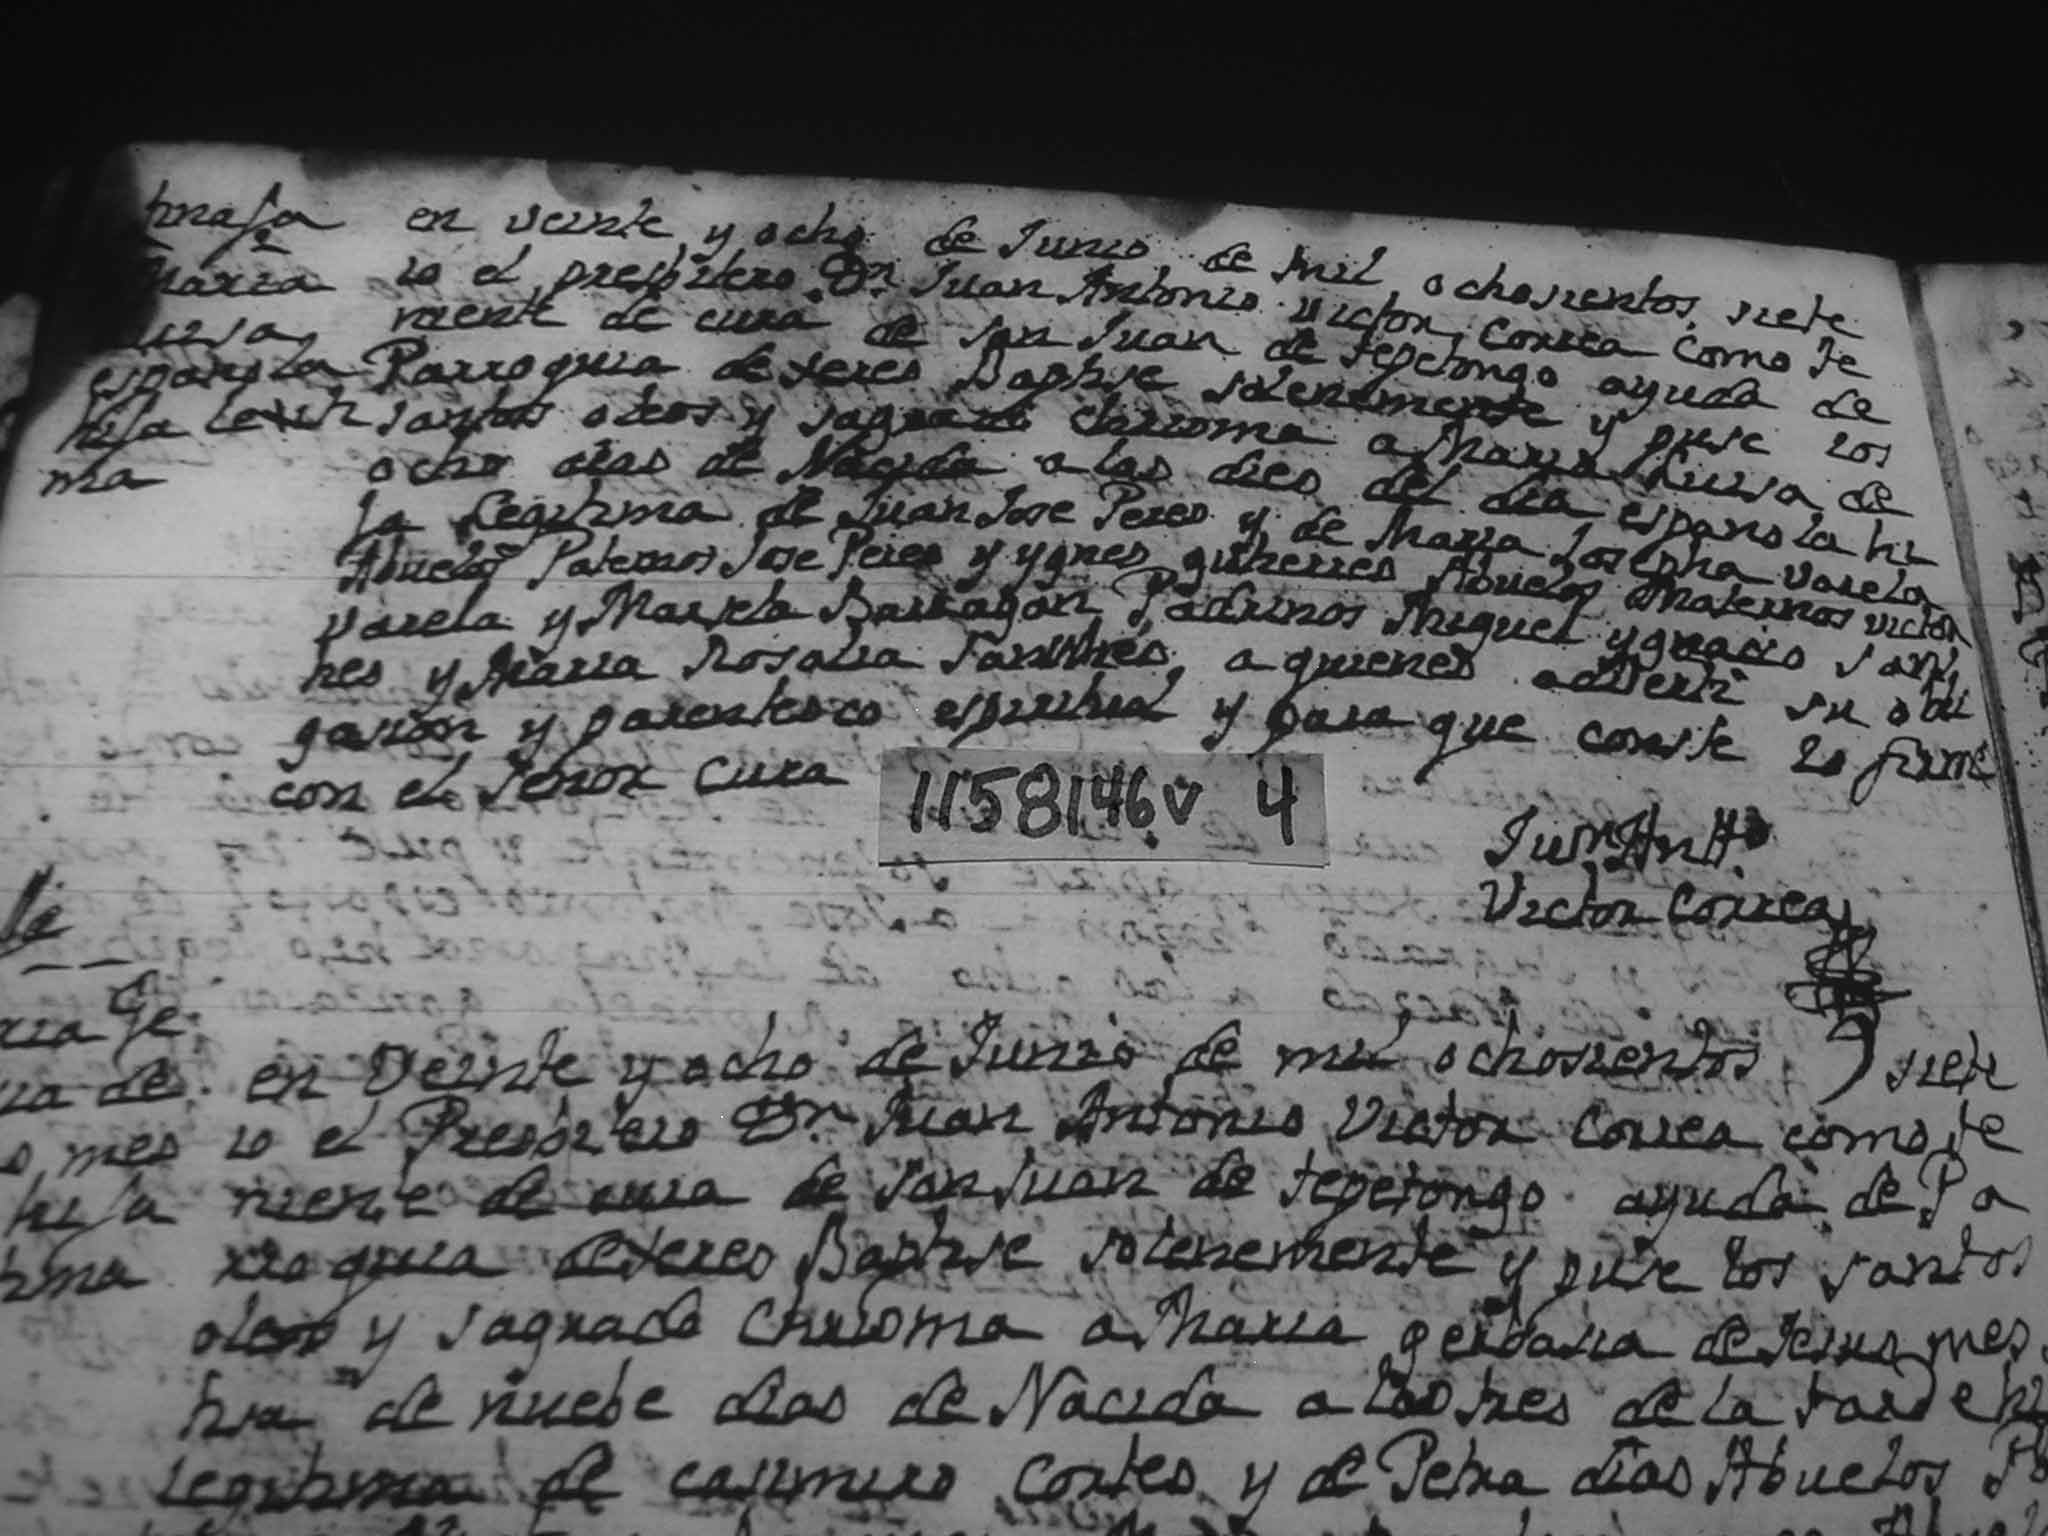 tnasa
Maria
uisa
española
hisa lexit
ma
en veinte y ocho de Junio de mil ochosientos siete
io el presbitero Dn Juan Antonio victor Correa Como te
niente de cura de san Juan de tepetongo ayuda de
Parroquia de xeres Baptise solenemente y puse los
santos oleos y sagrado chrisma a Maria Luisa de
ocho dias de Nacida a las dies del dia española hi
ja Legitima de Juan Jose Peres y de Maria Josepha varela
Abuelos Paternos Jose Peres y ygnes gutierres Abuelos Maternos victor
varela y Mariela Barragan Padrinos Miguel ygnacio
hes y Maria Rosalia a quienes adverti su obli
gasion y parentesco espiritual y para que conste lo firme
con el señor Cura
11158146.v 4
Juan Antto
Victor Correa
ria Ge
ria de
mes
hija
tima
en Veinte y ocho de Junio de mil ochosientos siete
io el Presbitero Dn Juan Antonio Victor Correa como te
niente de cura de san Juan de tepetongo ayuda de Pa
rroquia de xeres Baptise solenemente y puse los santos
oleos y sagrado Chrisma a Maria gerbasia de Jesus mes
tisa de nuebe dias de Nacida a las tres de la tarde hi
Legitima de casimiro Cortes y de Petra dias Abuelos